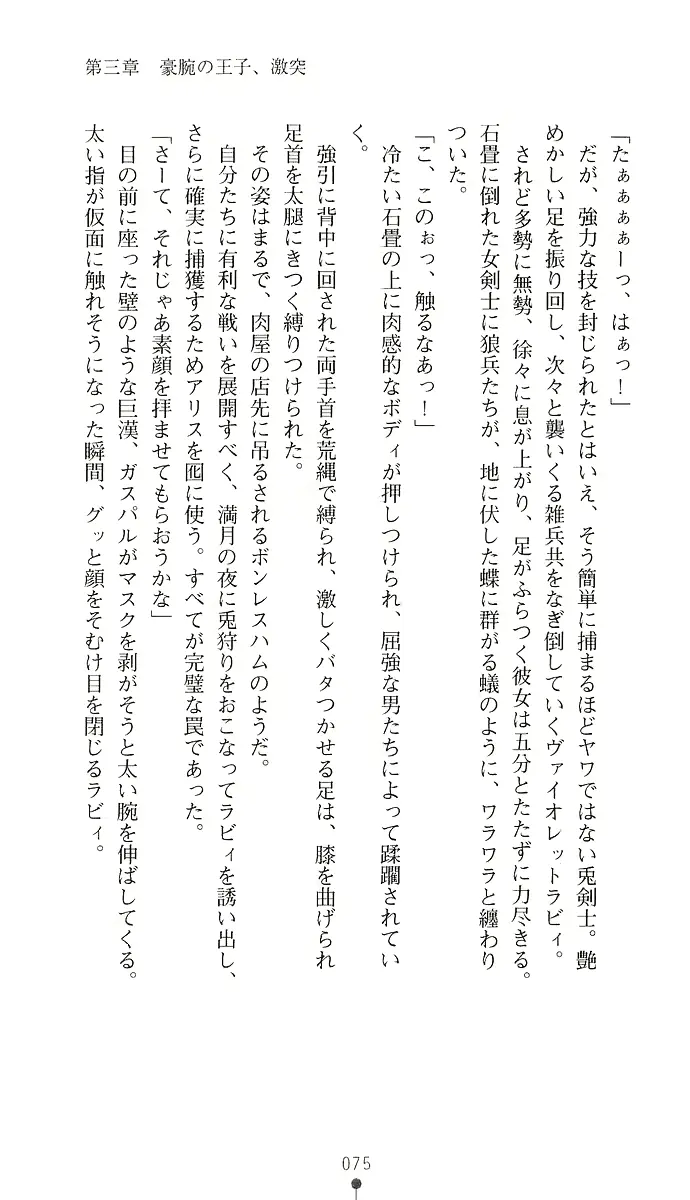 第三章　豪腕の王子、激突
「たぁぁぁぁーっ、はぁっ！」
　だが、強力な技を封じられたとはいえ、そう簡単に捕まるほどヤワではない兎剣士。艶
めかしい足を振り回し、次々と襲いくる雑兵共をなぎ倒していくヴァイオレットラビィ。
　されど多勢に無勢、徐々に息が上がり、足がふらつく彼女は五分とたたずに力尽きる。
石畳に倒れた女剣士に狼兵たちが、地に伏した蝶に群がる蟻のように、ワラワラと纏わり
ついた。
「こ、このぉっ、触るなあっ！」
　冷たい石畳の上に肉感的なボディが押しつけられ、屈強な男たちによって蹂躙されてい
く。
　強引に背中に回された両手首を荒縄で縛られ、激しくバタつかせる足は、膝を曲げられ
足首を太腿にきつく縛りつけられた。
　その姿はまるで、肉屋の店先に吊るされるボンレスハムのようだ。
　自分たちに有利な戦いを展開すべく、満月の夜に兎狩りをおこなってラビィを誘い出し、
さらに確実に捕獲するためアリスを囮に使う。すべてが完璧な罠であった。
「さーて、それじゃあ素顔を拝ませてもらおうかな」
　目の前に座った壁のような巨漢、ガスパルがマスクを剥がそうと太い腕を伸ばしてくる。
太い指が仮面に触れそうになった瞬間、グッと顔をそむけ目を閉じるラビィ。
075